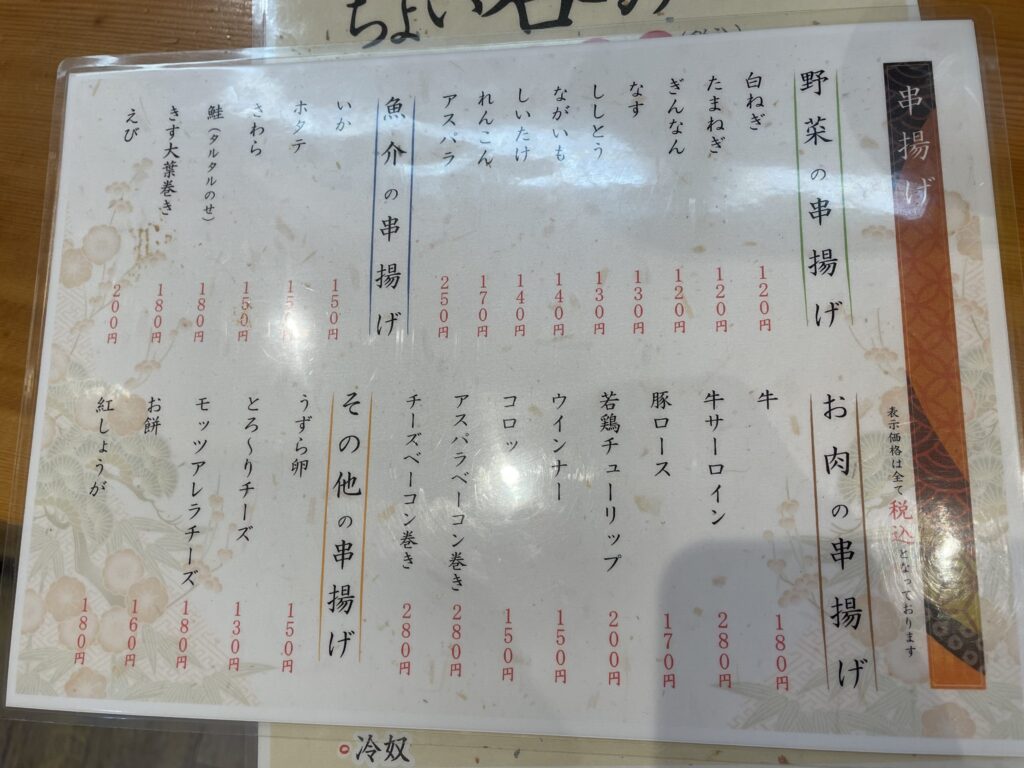 串揚げ
表示価格は全て税込となっております
野菜の串揚げ
白ねぎ 120円
たまねぎ 120円
ぎんなん 120円
なす 130円
ししとう 130円
ながいも 140円
しいたけ 140円
れんこん 170円
アスパラ 250円
魚介の串揚げ
いか 150円
ホタテ 150円
さわら 150円
鮭（タルタルのせ） 180円
きす大葉巻き 180円
えび 200円
お肉の串揚げ
牛 180円
牛サーロイン 280円
豚ロース 170円
若鶏チューリップ 200円
ウインナー 150円
コロッ 150円
アスパラベーコン巻き 280円
チーズベーコン巻き 280円
その他の串揚げ
うずら卵 150円
とろ〜りチーズ 130円
モッツアレラチーズ 180円
お餅 160円
紅しょうが 180円
冷奴